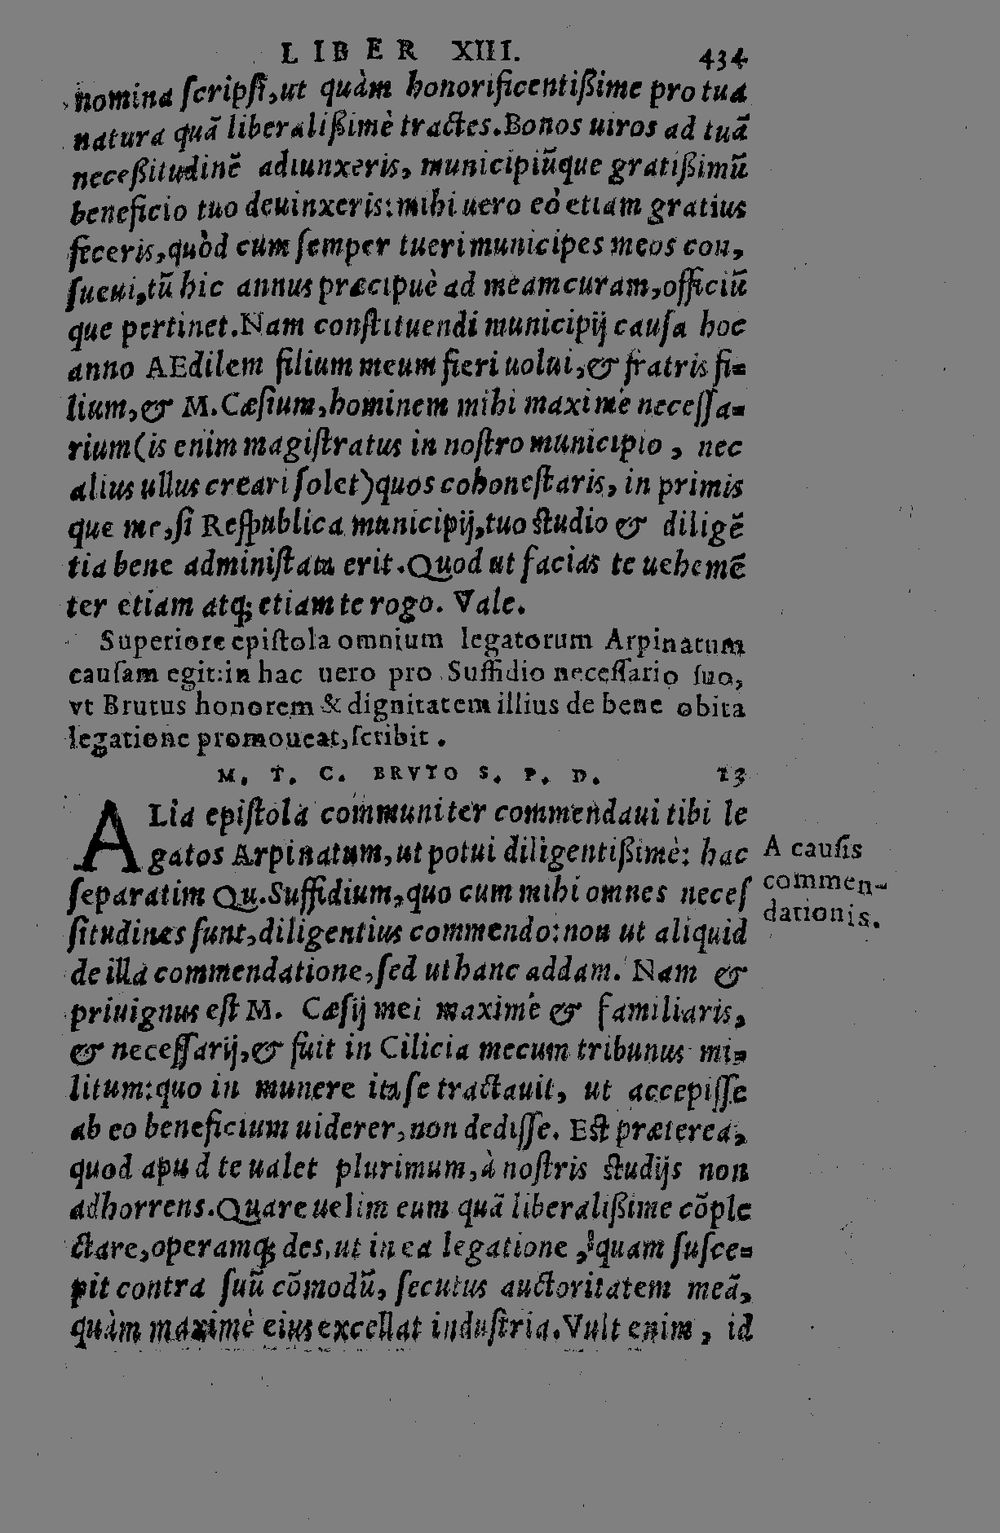 LIBER XIII. 434
nomina ſcripſi,ut quàm honorificentißime pro tua
natura quã liberalißimè tractes.Bonos uiros ad tuã
neceßitudinẽ adiunxeris, municipiũque gratißimũ
beneficio tuo deuinxeris:mihi uero eò etiam gratius
feceris,quòd cum ſemper tueri municipes meos con,
ſueui,tũ hic annus præcipuè ad meam curam,officiũ
que pertinet.Nam conſtituendi municipij cauſa hoc
anno AEdilem filium meum fieri uolui,& fratris fi-
lium,& M.Cæſium,hominem mihi maximè neceſſa-
rium(is enim magiſtratus in noſtro municipio , nec
alius ullus creari ſolet)quos cohoneſtaris, in primis
que me,ſi Reſpublica municipij,tuo ſtudio & diligẽ
tia bene adminiſtata erit.Quod ut facias te uehemẽ
ter etiam atq; etiam te rogo. Vale.
Superiore epiſtola omnium legatorum Arpinatum
cauſam egit:in hac uero pro Suffidio neceſſario ſuo,
vt Brutus honorem & dignitatem illius de bene obita
legatione promoueat,ſcribit .
M. T. C. BRVTO S. P. D. 13
ALia epiſtola communiter commendaui tibi le
gatos Arpinatum,ut potui diligentißimè: hac
ſeparatim Qu.Suffidium,quo cum mihi omnes neceſ
ſitudines ſunt,diligentius commendo:non ut aliquid
de illa commendatione,ſed ut hanc addam. Nam &
priuignus eſt M. Cæſij mei maximè & familiaris,
& neceſſarij,& fuit in Cilicia mecum tribunus mi-
litum:quo in munere ita ſe tractauit, ut accepiſſe
ab eo beneficium uiderer,non dediſſe. Eſt præterea,
quod apud te ualet plurimum,à noſtris ſtudijs non
abhorrens.Quare uelim eum quã liberalißime cõple
ctare,operamq; des,ut in ea legatione , quam ſuſce-
pit contra ſuũ cõmodũ, ſecutus auctoritatem meã,
quàm maximè eius excellat induſtria.Vult enim , id
A cauſis
commen-
dationis.